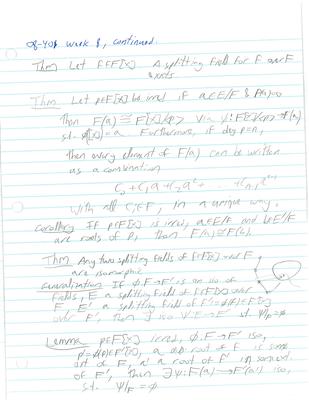 week 8, continued.
Thm Let f∈F[x]. A splitting field for f over F
exists
Thm Let p∈F[x] be irred, if a∈E/F & p(a)=0
Then F(a) ≅ F[x]/<p> via ψ: F[x]/<p> → F(a)
st. = a. Furthermore, if deg p=n,
then every element of F(a) can be written
as a combination
c₀ + c₁a + c₂a² + ... + cₙ₋₁aⁿ⁻¹
With all cᵢ∈F, in a unique way.
corollary If p∈F[x] is irred, a∈E/F and b∈E'/F
are roots of p, then F(a)≅F(b).
Thm Any two splitting fields of f∈F[x] over F
are isomorphic
Generalization If φ:F→F' is an iso of
fields, E a splitting field of f∈F[x] over
F, E' a splitting field of f'=φ(f)∈F'[x]
over F', then ∃ iso ψ:E→E' st ψ|F=φ
Lemma p∈F[x] irred, φ:F→F' iso,
p'=φ(p)∈F'[x], a root of p in some
ext of F, a' a root of p' in some ext
of F', then ∃ψ:F(a)→F'(a') iso,
st. ψ|F=φ